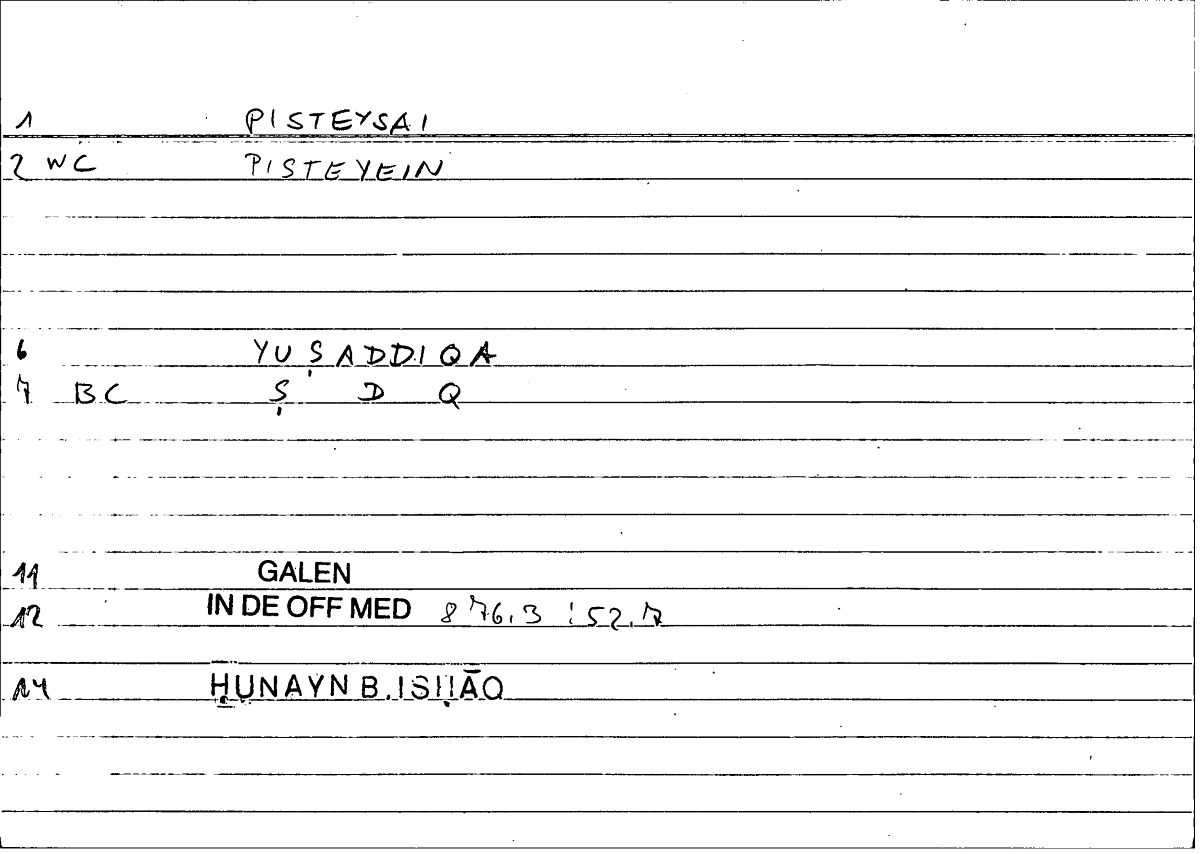 1 PISTEYSAI
2 WC PISTEYEIN
6 YUṢADDIQA
7 BC Ṣ D Q
11 GALEN
12 IN DE OFF MED 876.3 : 52.7
14 ḤUNAYN B. ISḤĀQ